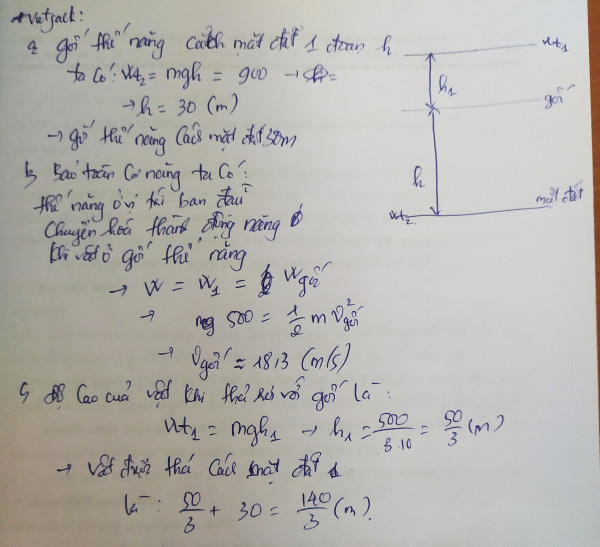 Vietjack:
a, gốc thế năng cách mặt đất 1 đoạn h
ta có: Wt₂ = mgh = 900 →
→ h = 30 (m)
→ gốc thế năng cách mặt đất 30m
b, Bảo toàn cơ năng ta có:
thế năng ở vị trí ban đầu
chuyển hoá thành động năng
khi vật ở gốc thế năng
→ W = W₁ = W gốc
→ 500 = 1/2 m v² gốc
→ v gốc ≈ 18,3 (m/s)
c, Độ cao của vật khi thả so với gốc là:
Wt₁ = mgh₁ → h₁ = 500/3.10 = 50/3 (m)
→ vật được thả cách mặt đất
là: 50/3 + 30 = 140/3 (m).
Wt₁
h₁
gốc
h
mặt đất
Wt₂